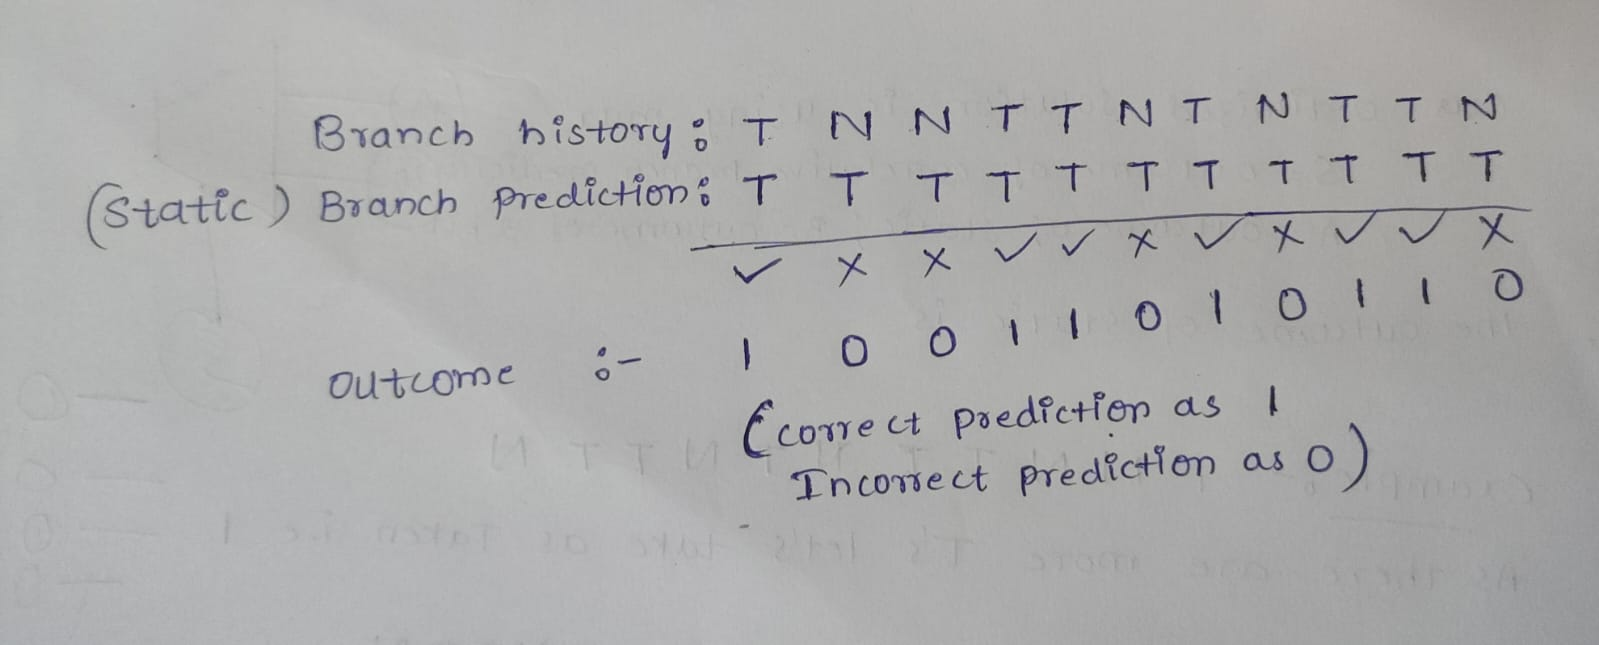 Branch history : T N N T T N T N T T N
(Static) Branch prediction : T T T T T T T T T T T
✓ X X ✓ ✓ X ✓ X ✓ ✓ X
outcome :- 1 0 0 1 1 0 1 0 1 1 0
(correct prediction as 1
Incorrect prediction as 0)